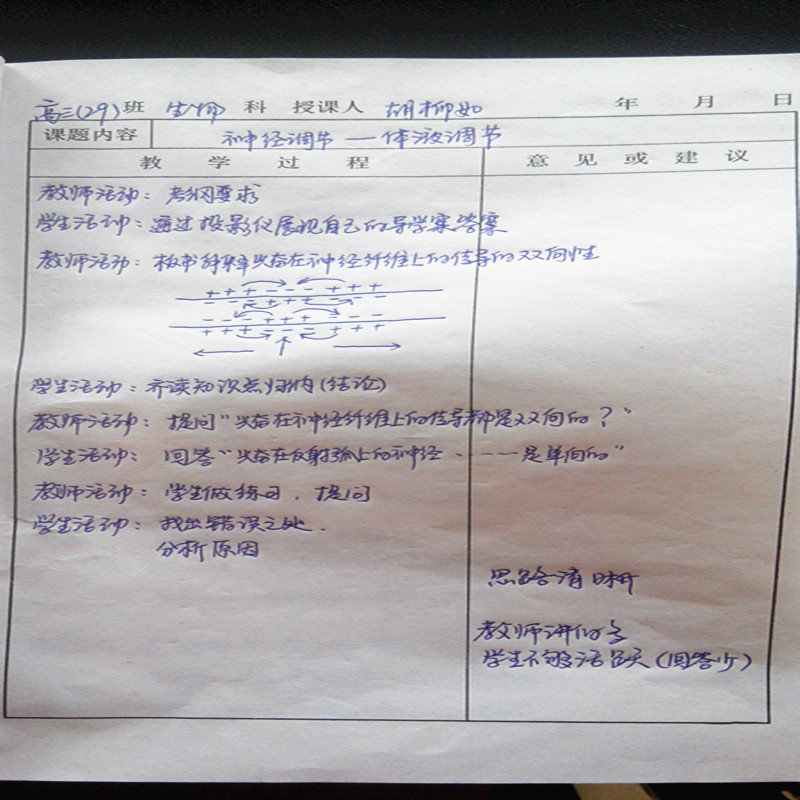 高三(29)班 生物 科 授课人 胡柳如 年 月 日
课题内容 神经调节——体液调节
教 学 过 程 意 见 或 建 议
教师活动：考纲要求
学生活动：通过投影仪展现自己的导学案答案
教师活动：板书解释兴奋在神经纤维上的传导的双向性
+ + + - - - + + +
- - - + + + - - -
- - - + + + - - -
+ + + - - - + + +
学生活动：齐读知识点归纳(结论)
教师活动：提问“兴奋在神经纤维上的传导都是双向的？”
学生活动：回答“兴奋在反射弧上的神经……是单向的”
教师活动：学生做练习，提问
学生活动：找出错误之处.
分析原因
思路清晰
教师讲的多
学生不够活跃(回答少)